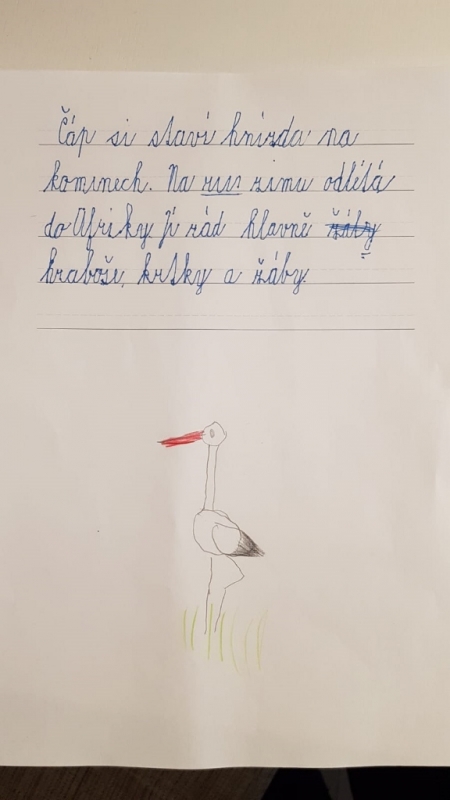 Čáp si staví hnízda na
komínech. Na zimu odlétá
do Afriky Jí rád hlavně žáby
hraboše, krtky a žáby.